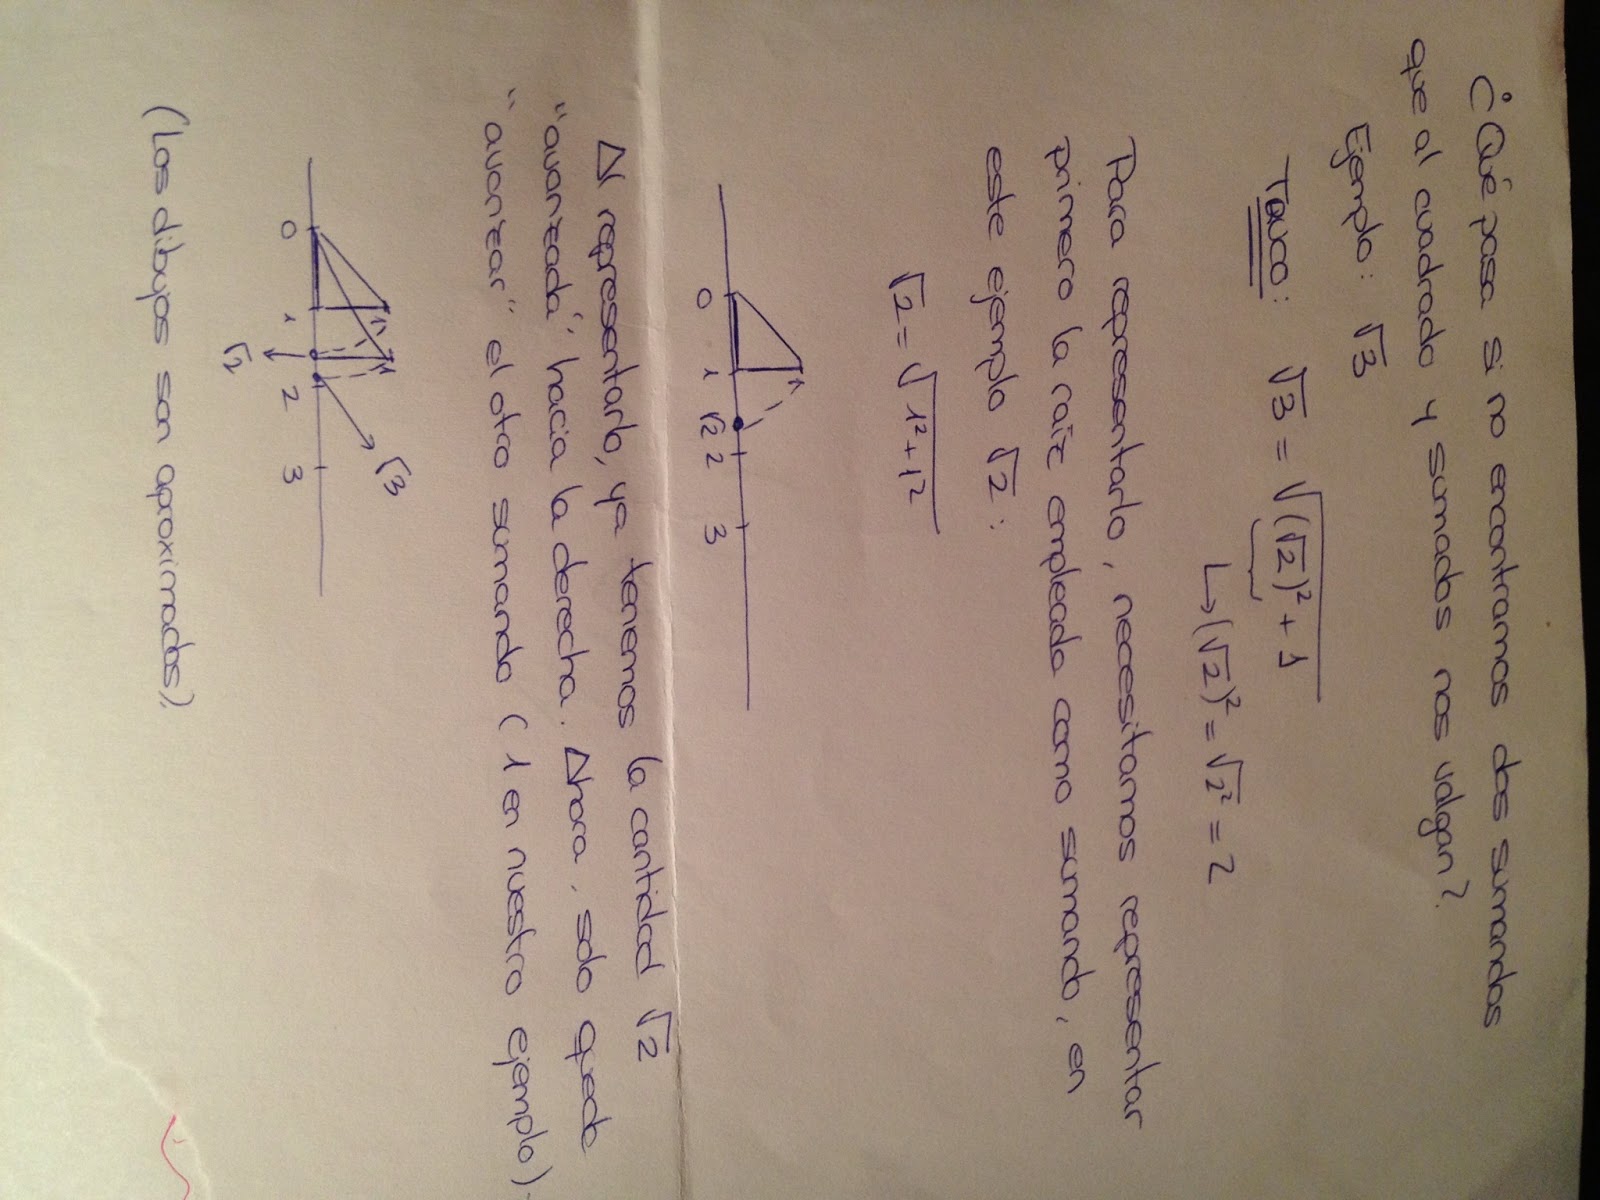 ¿Qué pasa si no encontramos dos sumandos
que al cuadrado y sumados nos valgan?
Ejemplo: √3
Truco: √3 = √((√2)² + 1
↳ (√2)² = √2² = 2
Para representarlo, necesitamos representar
primero la raíz empleada como sumando, en
este ejemplo √2:
√2 = √(1² + 1²)
0 1 √2 2 3
Al representarlo, ya tenemos la cantidad √2
"avanzada" hacia la derecha. Ahora, solo quede
"avanzar" el otro sumando (1 en nuestro ejemplo).
0 1 2 3
√2 √3
(Los dibujos son aproximados)